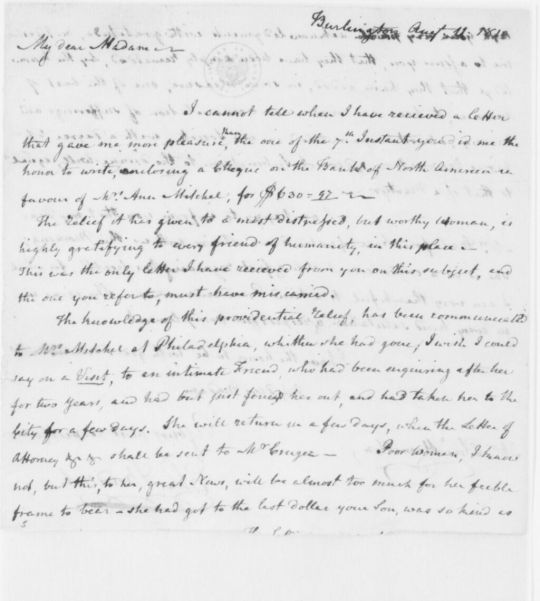 Burlington Augt 11. 1812
My dear Madam
I cannot tell when I have recieved a letter
that gave me more pleasure, than the one of the 7th Instant you did me the
honor to write, enclosing a Cheque on the Bank of North America in
favour of Mrs Ann Mitchel, for $630=97
The relief it has given to a most distressed, but worthy Woman, is
highly gratifying to every friend of humanity, in this place -
This was the only letter I have recieved from you on this subject, and
the one you refer to, must have miscarried.
The knowledge of this providential relief, has been communicated
to Mrs Mitchel at Philadelphia, whither she had gone, I wish I could
say on a Visit, to an intimate Friend, who had been enquiring after her
for two Years, and had but just found her out, and had taken her to the
City for a few days. She will return in a few days, when the Letter of
Attorney &c &c shall be sent to Mr Cruger - Poor Woman, I know
not, but this, to her, great News, will be almost too much for her feeble
frame to bear - she had got to the last dollar your Son, was so kind as